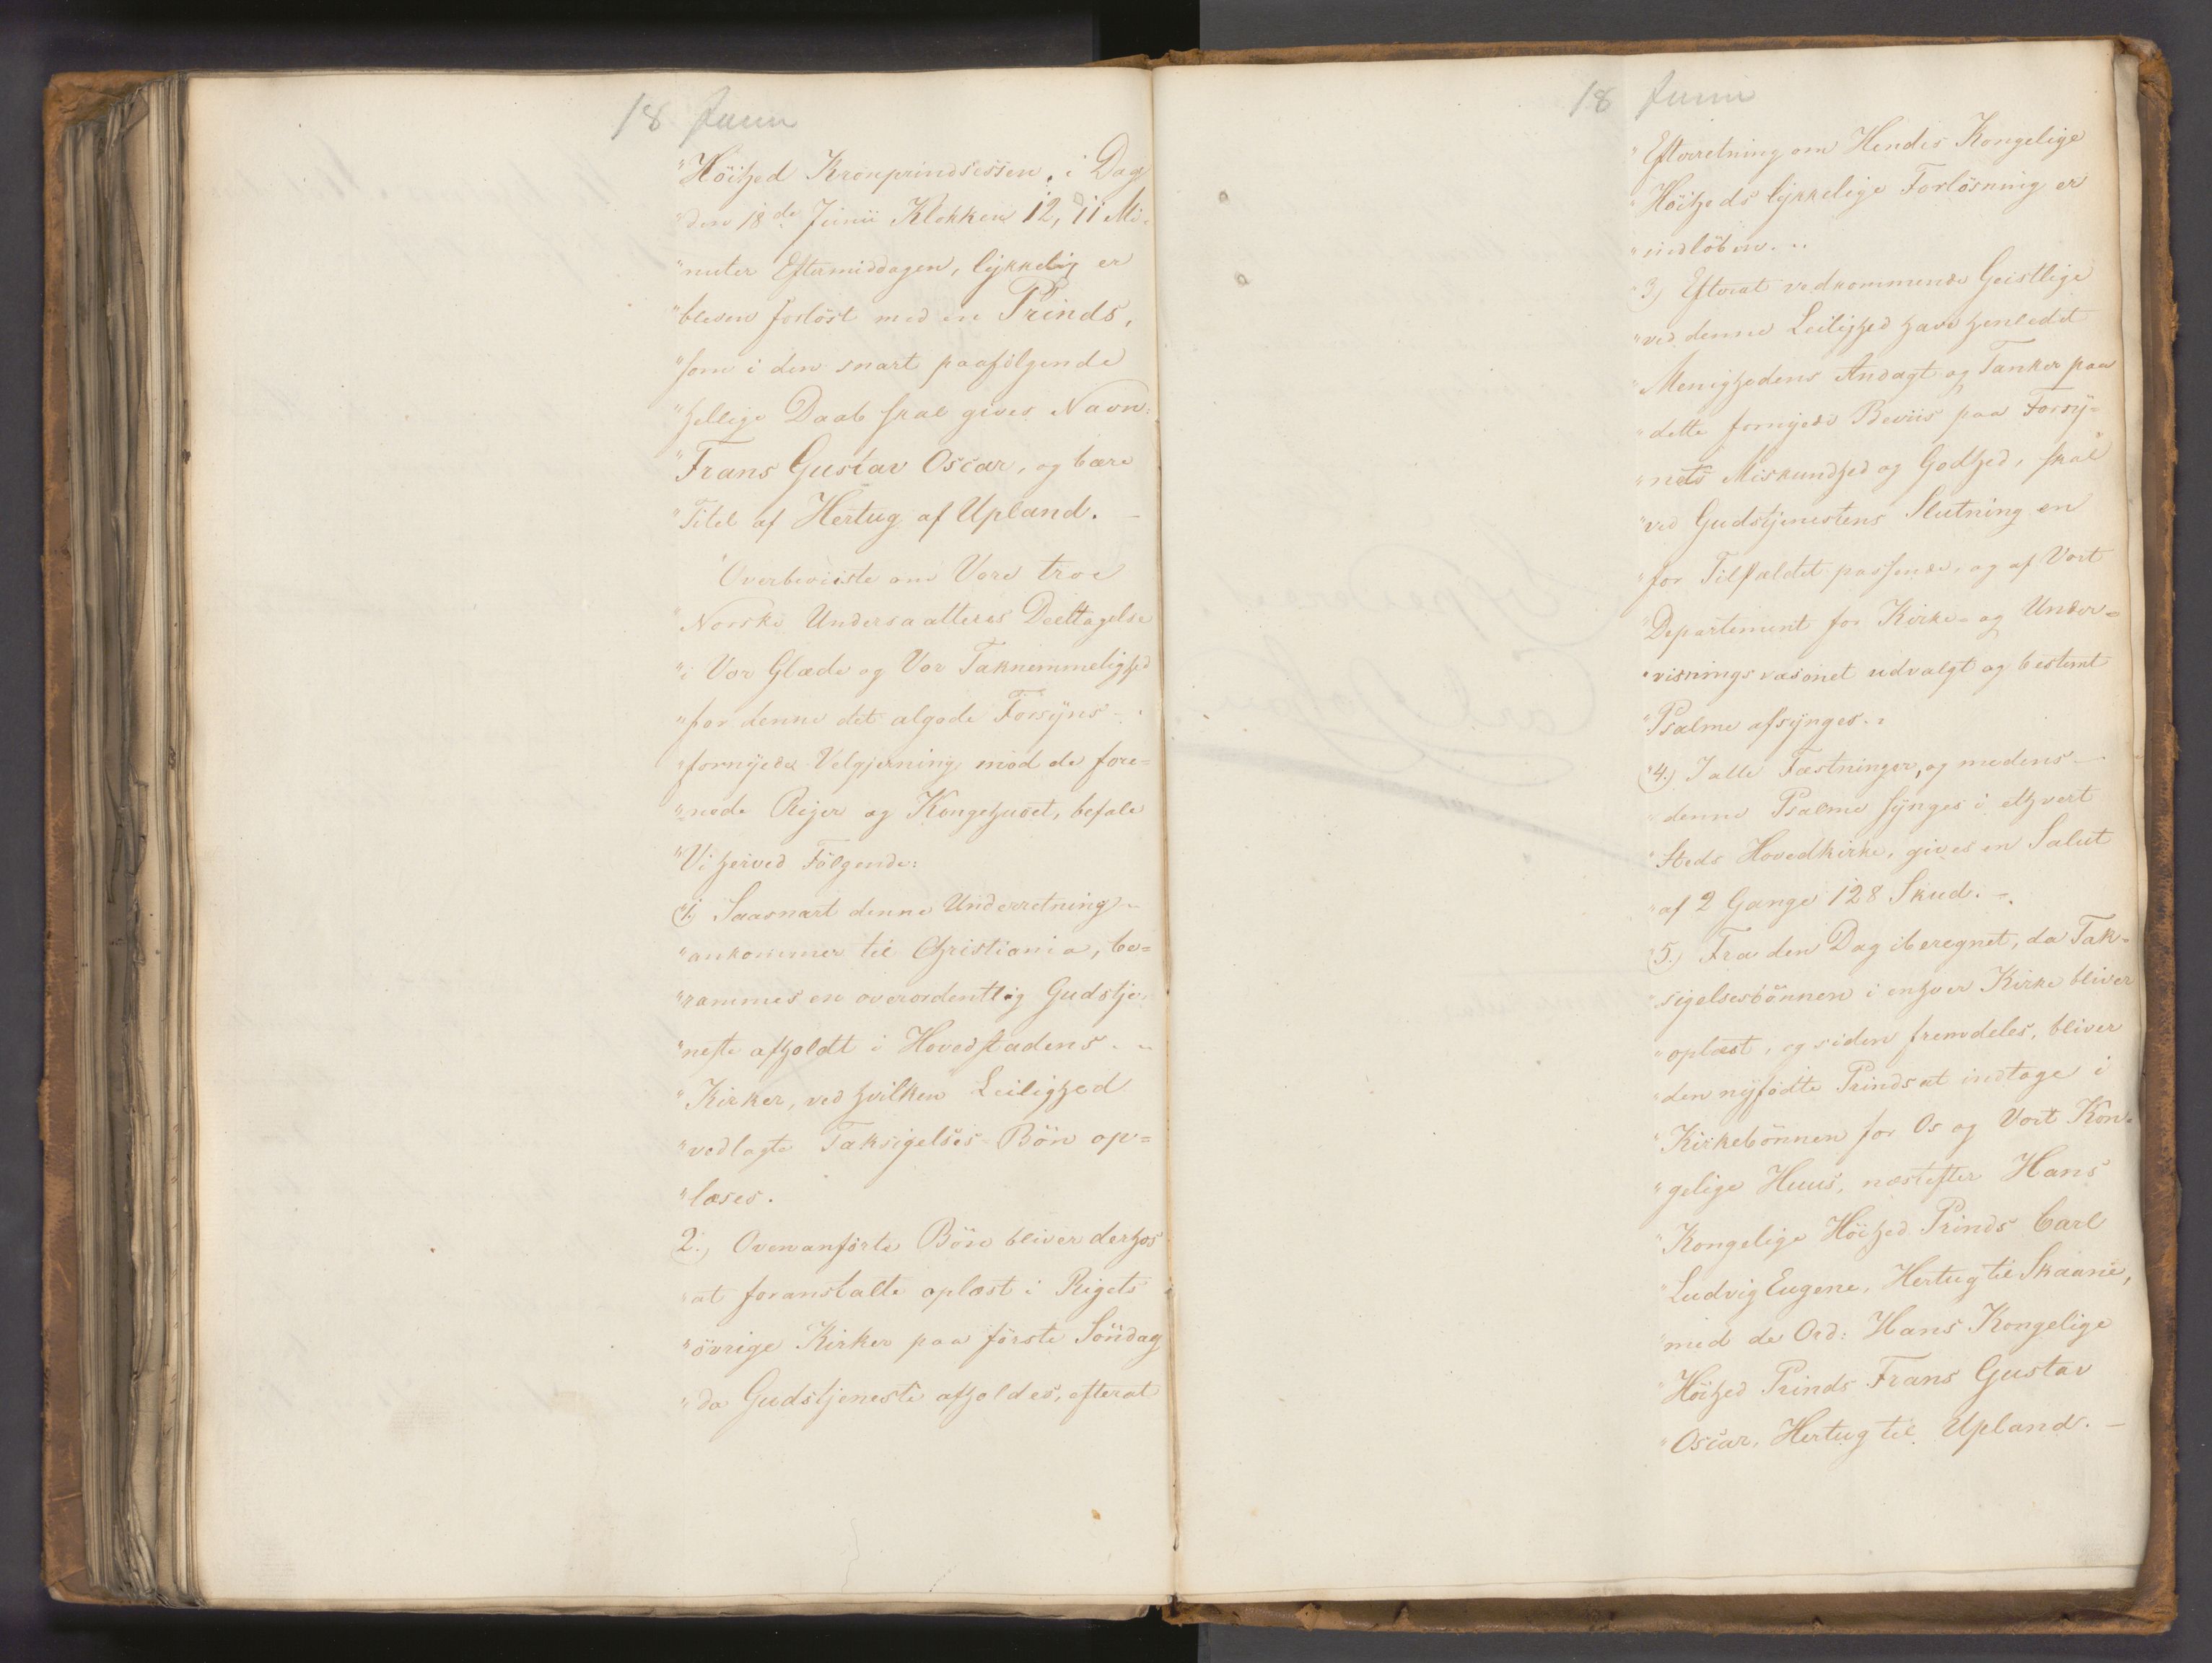 18 Juni
"Höihed Kronprindsessen, i Dag
"den 18de Junii Klokken 12, 11 Mi-
"nuter Eftermiddagen, lykkelig er
"bleven forløst med en Prinds,
"som i den snart paafølgende
"hellige Daab skal gives Navn:
"Frans Gustav Oscar, og bære
"Titel af Hertug af Upland. –
"Overbeviiste om Vore troe
"Norske Undersaatteres Deeltagelse
"i Vor Glæde og Vor Taknemmelighed
"for denne det algode Forsyns –
"fornyede Velgjerning mod de fore=
"nede Riger og Kongehuset, befale
"Vi herved Følgende:
"1.) Saasnart denne Underretning –
"ankommer til Christiania, be=
"rammes en overordentlig Gudstje-
"neste afholdt i Hovedstadens –
"Kirker, ved hvilken Leilighed
"vedlagte Taksigelses-Bøn op=
"læses.
"2.) Ovenanførte Bøn bliver derhos
"at foranstalte oplæst i Rigets
"övrige Kirker paa første Söndag
"da Gudstjeneste afholdes, efterat
18 Juni
"Efterretning om Hendes Kongelige
"Höiheds lykkelige Forløsning er
"indløben. –
"3.) Efterat vedkommende Geistlige
"ved denne Leilighed have henledet
"Menighedens Andagt og Tanker paa
"dette fornyede Beviis paa Forsy=
"nets Miskundhed og Godhed, skal
"ved Gudstjenestens Slutning en
"for Tilfældet passende, og af Vort
"Departement for Kirke- og Under=
"visningsvæsenet udvalgt og bestemt
"Psalme afsynges. –
"4.) I alle Fæstninger, og medens –
"denne Psalme synges i ethvert
"Steds Hovedkirke, gives en Salut
"af 2 Gange 128 Skud. –
"5.) Fra den Dag iberegnet, da Tak=
"sigelsesbönnen i enhver Kirke bliver
"oplæst, og siden fremdeles, bliver
"den nyfødte Prinds at indtage i
"Kirkebönnen for Os og Vort Kon=
"gelige Huus, næstefter Hans
"Kongelige Höihed Prinds Carl
"Ludvig Eugene, Hertug til Skaane,
"med de Ord: Hans Kongelige
"Höihed Prinds Frans Gustav
"Oscar, Hertug til Upland. –